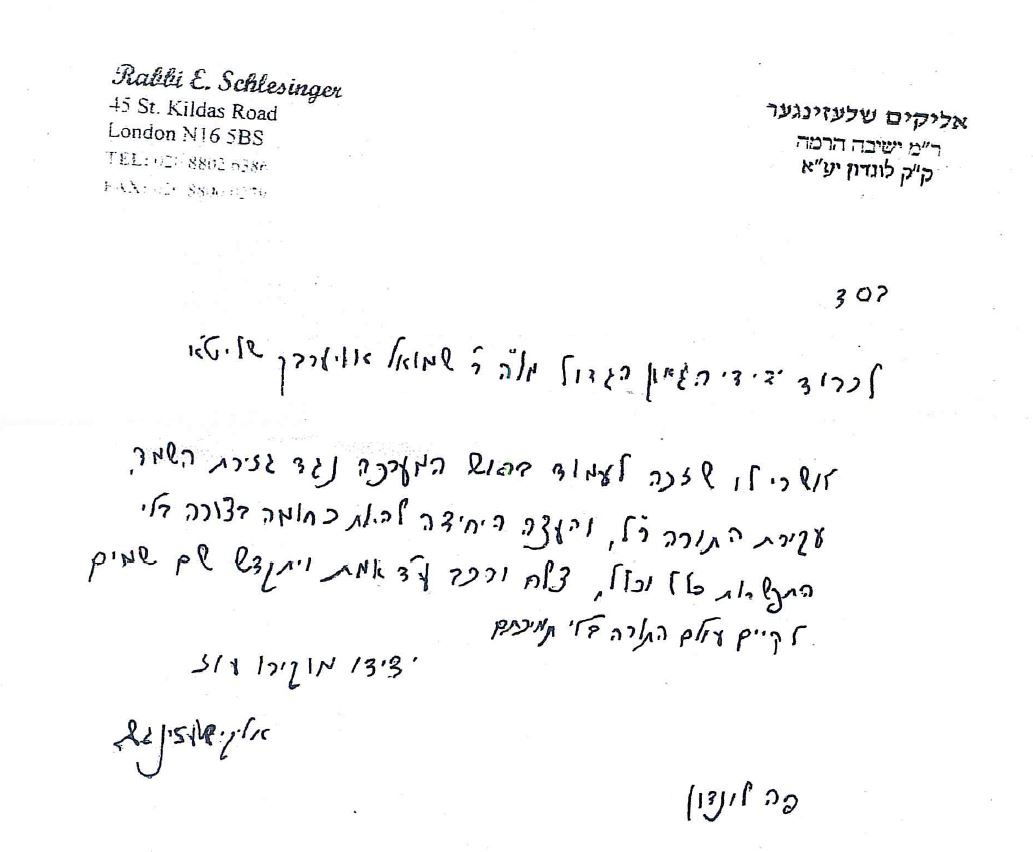 Rabbi E. Schlesinger
45 St. Kildas Road
London N16 5BS
TEL: 020 8802
FAX: 020
אליקים שלעזינגער
ר"מ ישיבה הרמה
ק"ק לונדון יע"א
בסד
לכבוד ידידי הגאון הגדול מו"ה ר' שמואל אויערבך שליט"א
אשרי לו שזכה לעמוד בראש המערכה נגד גזירת השמד,
עקירת התורה ר"ל, והעצה היחידה להיות כחומה בצורה בלי
התפשרות כלל וכלל, צלח ורכב ע"ד אמת ויתקדש שם שמים
לקיים עולם התורה בלי תמיכתם
ידידו מוקירו עוז
אליקים שלעזינגער
פה לונדון